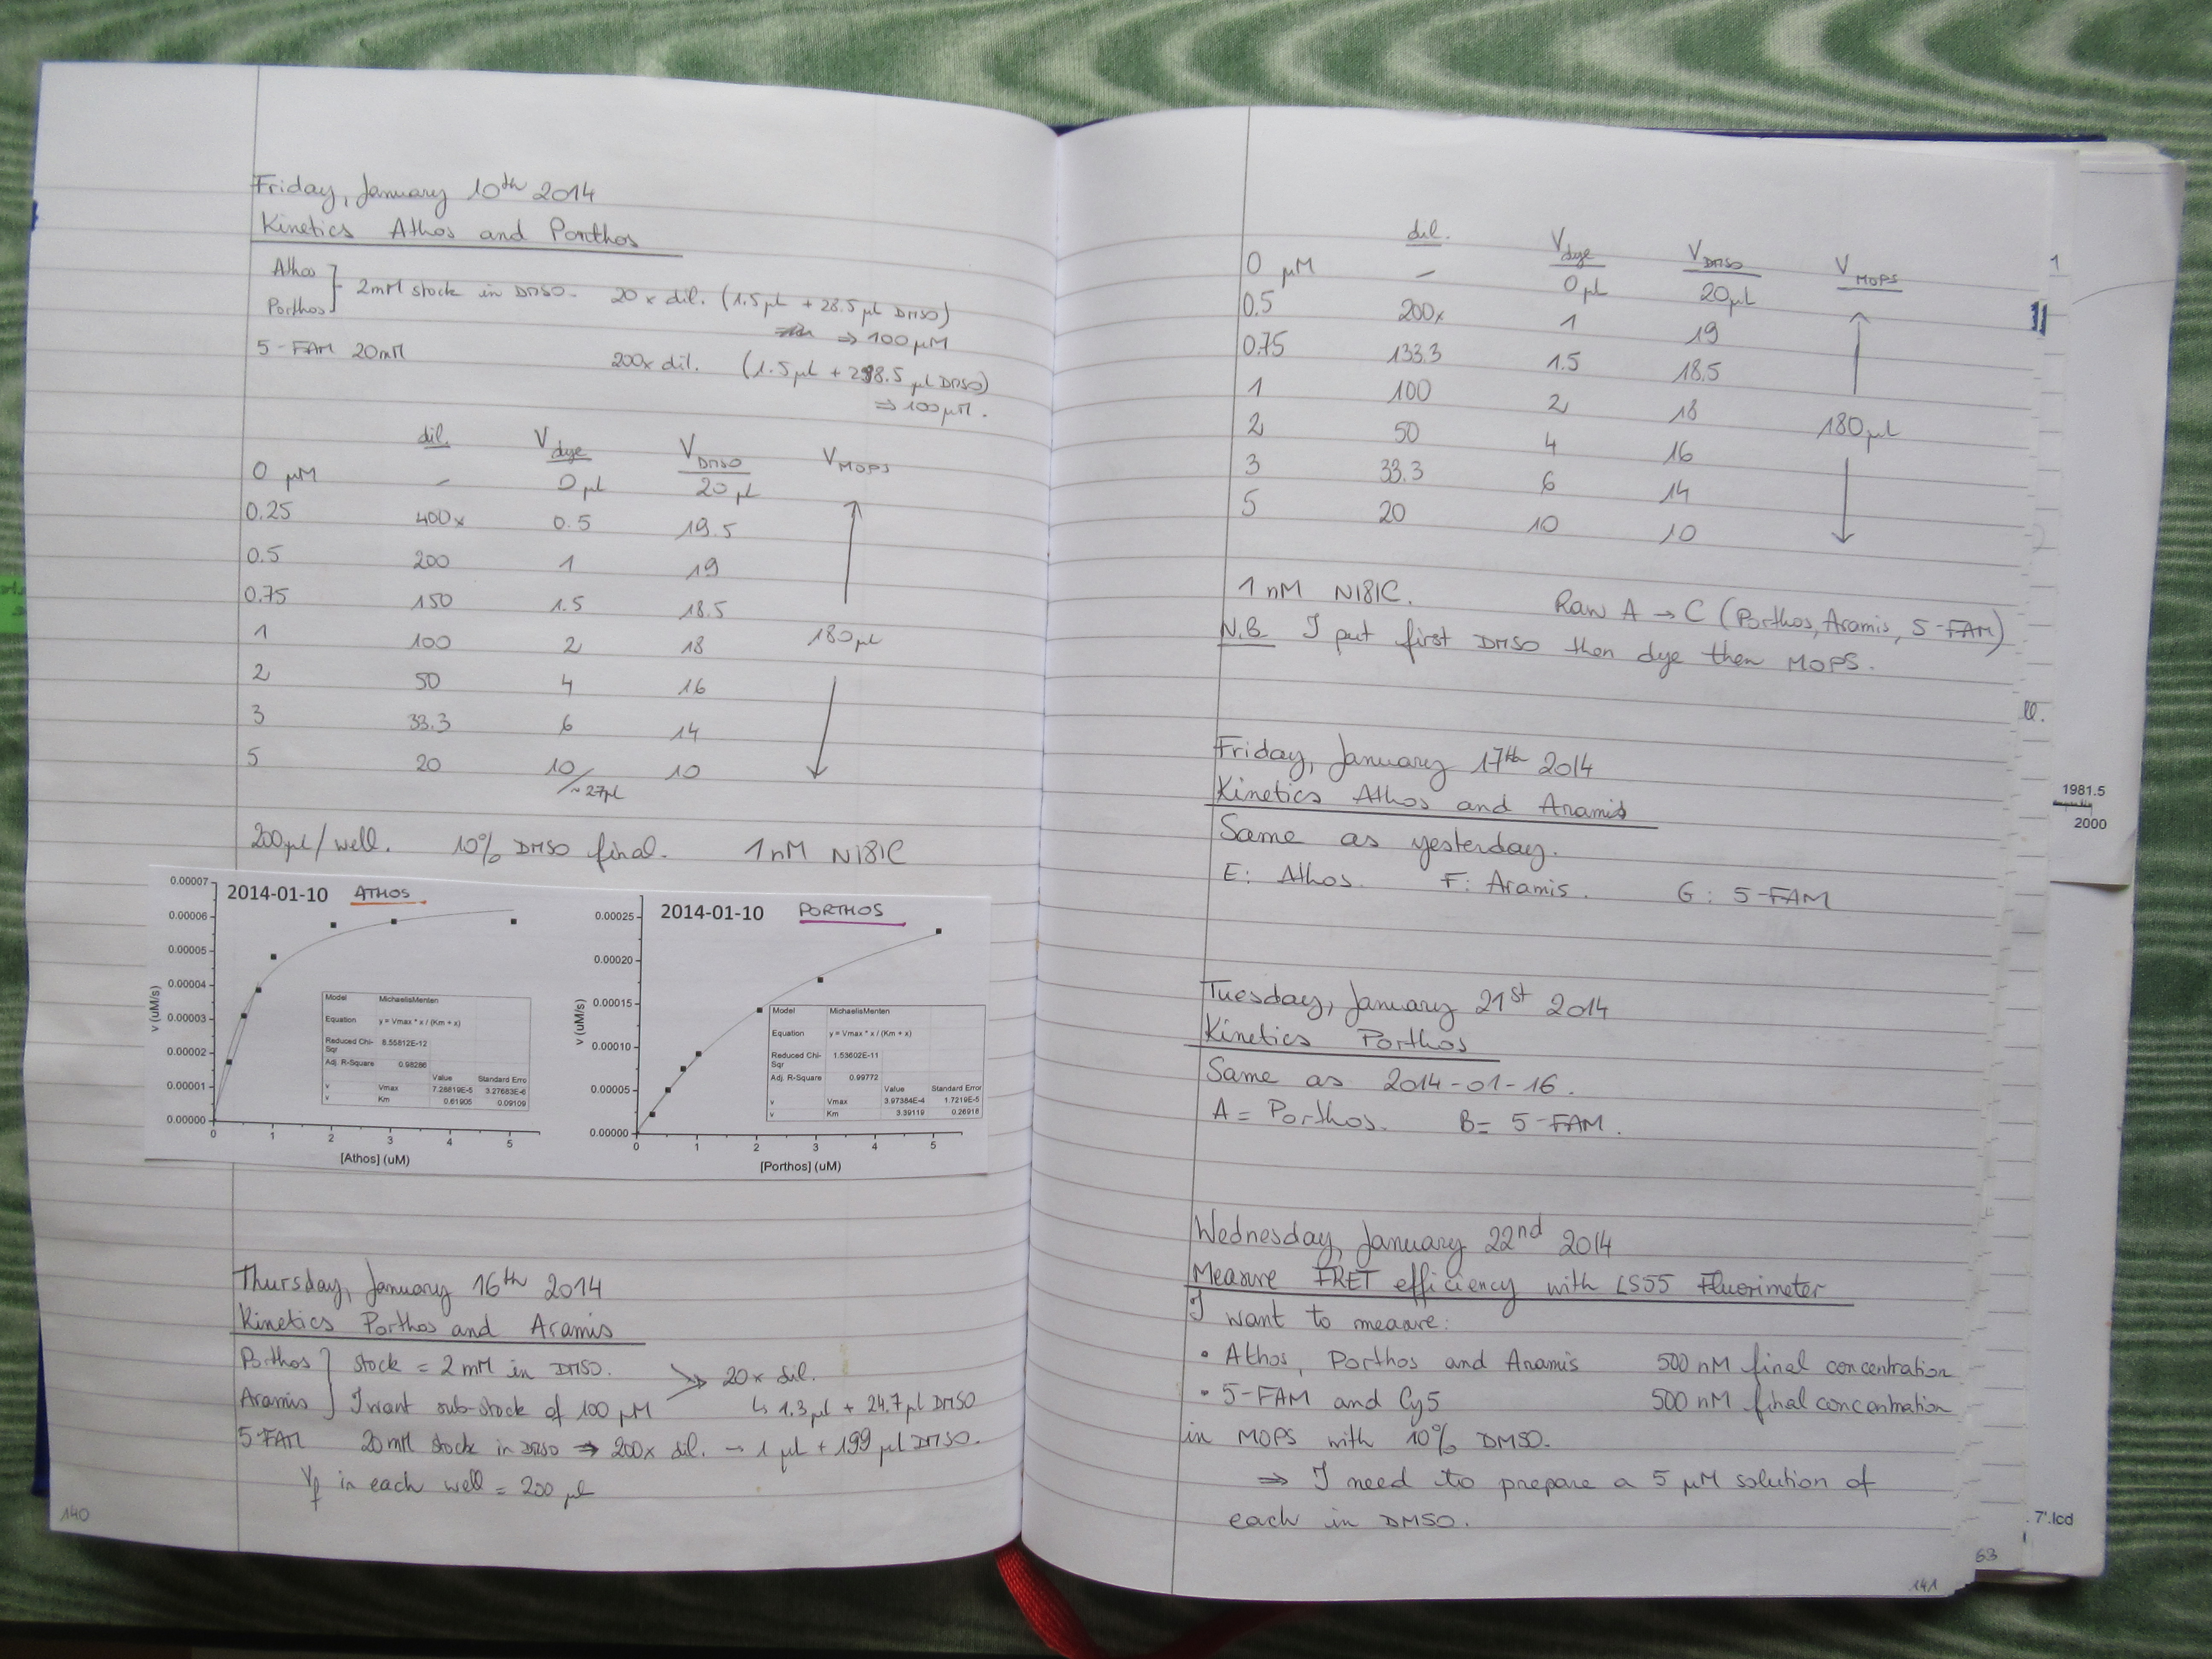 Friday, January 10th 2014
Kinetics Athos and Porthos
Athos
Porthos } 2mM stock in DMSO. 20x dil. (1.5 µl + 28.5 µl DMSO)
⇒ 100 µM
5-FAM 20mM 200x dil. (1.5 µl + 298.5 µl DMSO)
⇒ 100 µM.
dil. Vdye VDMSO VMOPS
0 µM – 0 µl 20 µl
0.25 400x 0.5 19.5
0.5 200 1 19
0.75 150 1.5 18.5
1 100 2 18 180 µl
2 50 4 16
3 33.3 6 14
5 20 10 10
~27µl
200µl/well. 10% DMSO final. 1 nM N181C
2014-01-10 ATHOS
0.00007
0.00006
0.00005
0.00004
0.00003
0.00002
0.00001
0.00000
v (uM/s)
0 1 2 3 4 5
[Athos] (uM)
Model MichaelisMenten
Equation y = Vmax * x / (Km + x)
Reduced Chi-Sqr 8.55812E-12
Adj. R-Square 0.98286
Value Standard Erro
v Vmax 7.28619E-5 3.27683E-6
v Km 0.61905 0.09109
2014-01-10 PORTHOS
0.00025
0.00020
0.00015
0.00010
0.00005
0.00000
v (uM/s)
0 1 2 3 4 5
[Porthos] (uM)
Model MichaelisMenten
Equation y = Vmax * x / (Km + x)
Reduced Chi-Sqr 1.53602E-11
Adj. R-Square 0.99772
Value Standard Error
v Vmax 3.97384E-4 1.7219E-5
v Km 3.39119 0.26918
Thursday, January 16th 2014
Kinetics Porthos and Aramis
Porthos } stock = 2 mM in DMSO. 20x dil.
Aramis } I want sub-stock of 100 µM ↳ 1.3 µl + 24.7 µl DMSO
5-FAM 20mM stock in DMSO ⇒ 200x dil. → 1 µl + 199 µl DMSO.
Vf in each well = 200 µl
140
dil. Vdye VDMSO VMOPS
0 µM – 0 µl 20 µl
0.5 200x 1 19
0.75 133.3 1.5 18.5
1 100 2 18
2 50 4 16 180 µl
3 33.3 6 14
5 20 10 10
1 nM N181C. Raw A → C (Porthos, Aramis, 5-FAM)
N.B. I put first DMSO then dye then MOPS.
Friday, January 17th 2014
Kinetics Athos and Aramis
Same as yesterday.
E: Athos. F: Aramis. G: 5-FAM
Tuesday, January 21st 2014
Kinetics Porthos
Same as 2014-01-16.
A = Porthos. B = 5-FAM.
Wednesday, January 22nd 2014
Measure FRET efficiency with LS55 Fluorimeter
I want to measure:
• Athos, Porthos and Aramis 500 nM final concentration
• 5-FAM and Cy5 500 nM final concentration
in MOPS with 10% DMSO.
⇒ I need to prepare a 5 µM solution of
each in DMSO.
141
63
1
ll.
1981.5
2000
7'.lcd